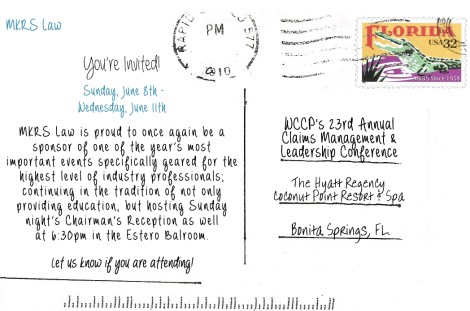 MKRS Law
You're Invited!
Sunday, June 8th -
Wednesday, June 11th
MKRS Law is proud to once again be a
sponsor of one of the year's most
important events specifically geared for the
highest level of industry professionals;
continuing in the tradition of not only
providing education, but hosting Sunday
night's Chairman's Reception as well
at 6:30pm in the Estero Balroom.
Let us know if you are attending!
PM
FLORIDA
USA 32
MKRS Since 1958
WCCP's 23rd Annual
Claims Management &
Leadership Conference
The Hyatt Regency
Coconut Point Resort & Spa
Bonita Springs, FL